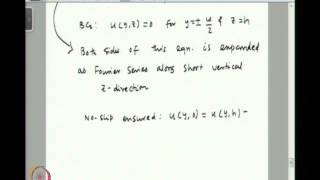 BCs: u(y,z) = 0 for y = ± w/2 & z = h
Both sides of this eqn. is expanded
as Fourier Series along short vertical
z-direction
No-slip ensured: u(y,0) = u(y,h) =